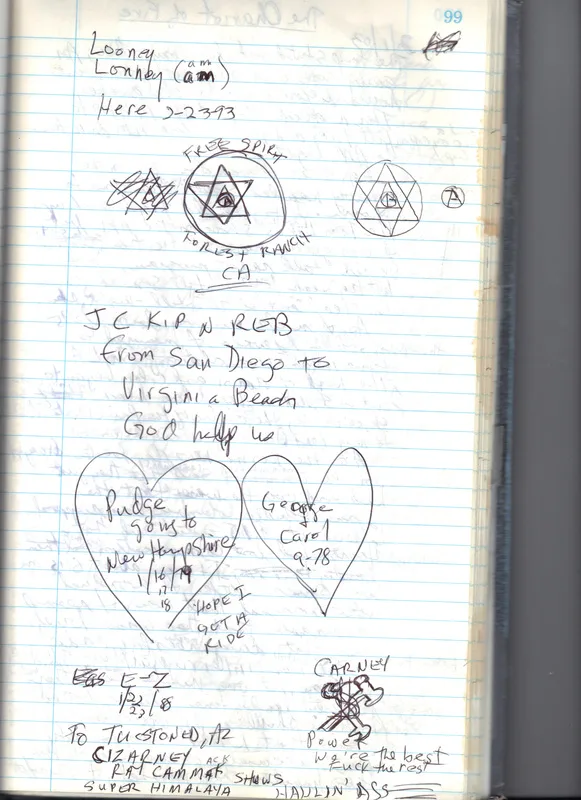 99
Looney
Lonney (am)
am
Here 2-23-93
FREE SPIRIT
A
B
A
FOREST RANCH
CA
JC KIP N REB
From San Diego to
Virginia Beach
God help us
Pudge
going to
New Hampshire
1/16/79
17
18
HOPE I
GET A
RIDE
George
&
Carol
9-78
E-Z
1/22/88
23
To TUESTONED, AZ
CARNEY
Power
We're the best
Fuck the rest
CIZARNEY
RAY CAMMACK SHOWS
SUPER HIMALAYA
HAULIN' ASS